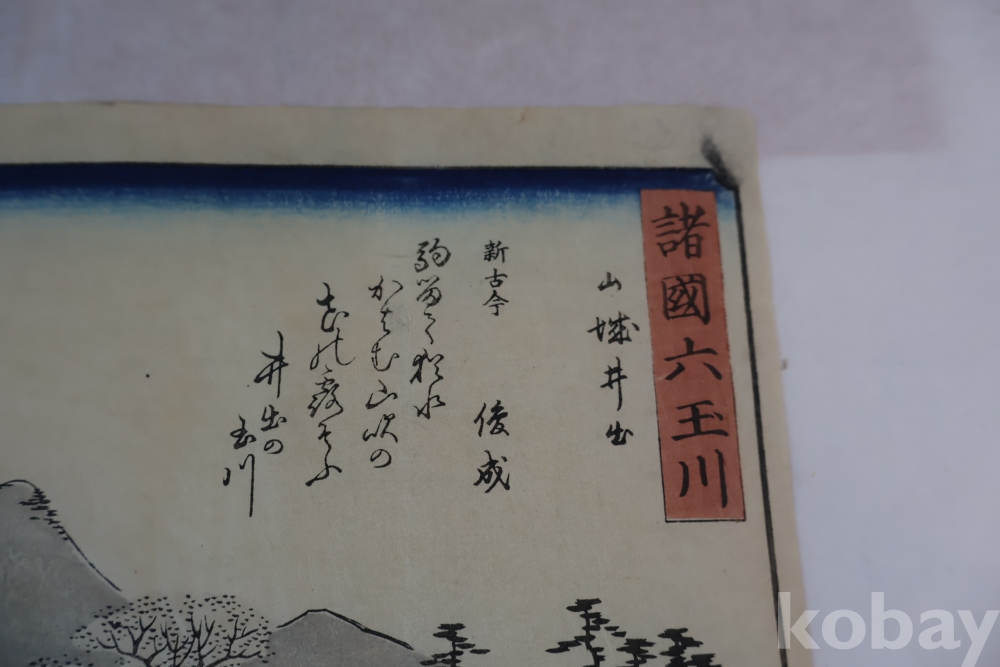 諸國六玉川
山城井出
新古今 俊成
駒留て猶水
かはむ山吹の
花の露そふ
井出の
玉川
kobay